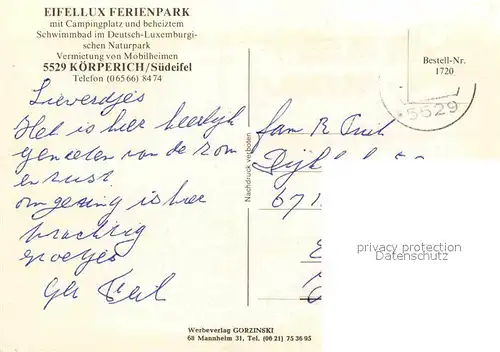 EIFELLUX FERIENPARK
mit Campingplatz und beheiztem
Schwimmbad im Deutsch-Luxemburgi-
schen Naturpark
Vermietung von Mobilheimen
5529 KÖRPERICH/Südeifel
Telefon (0 65 66) 84 74
Bestell-Nr.
1720
5529
Lieverdjes
Het is hier heerlijk
genieten van de zon
en rust.
omgeving is hier
prachtig
groetjes
Fam
671
Nachdruck verboten
privacy protection
Datenschutz
Werbeverlag GORZINSKI
68 Mannheim 31, Tel. (06 21) 75 36 95